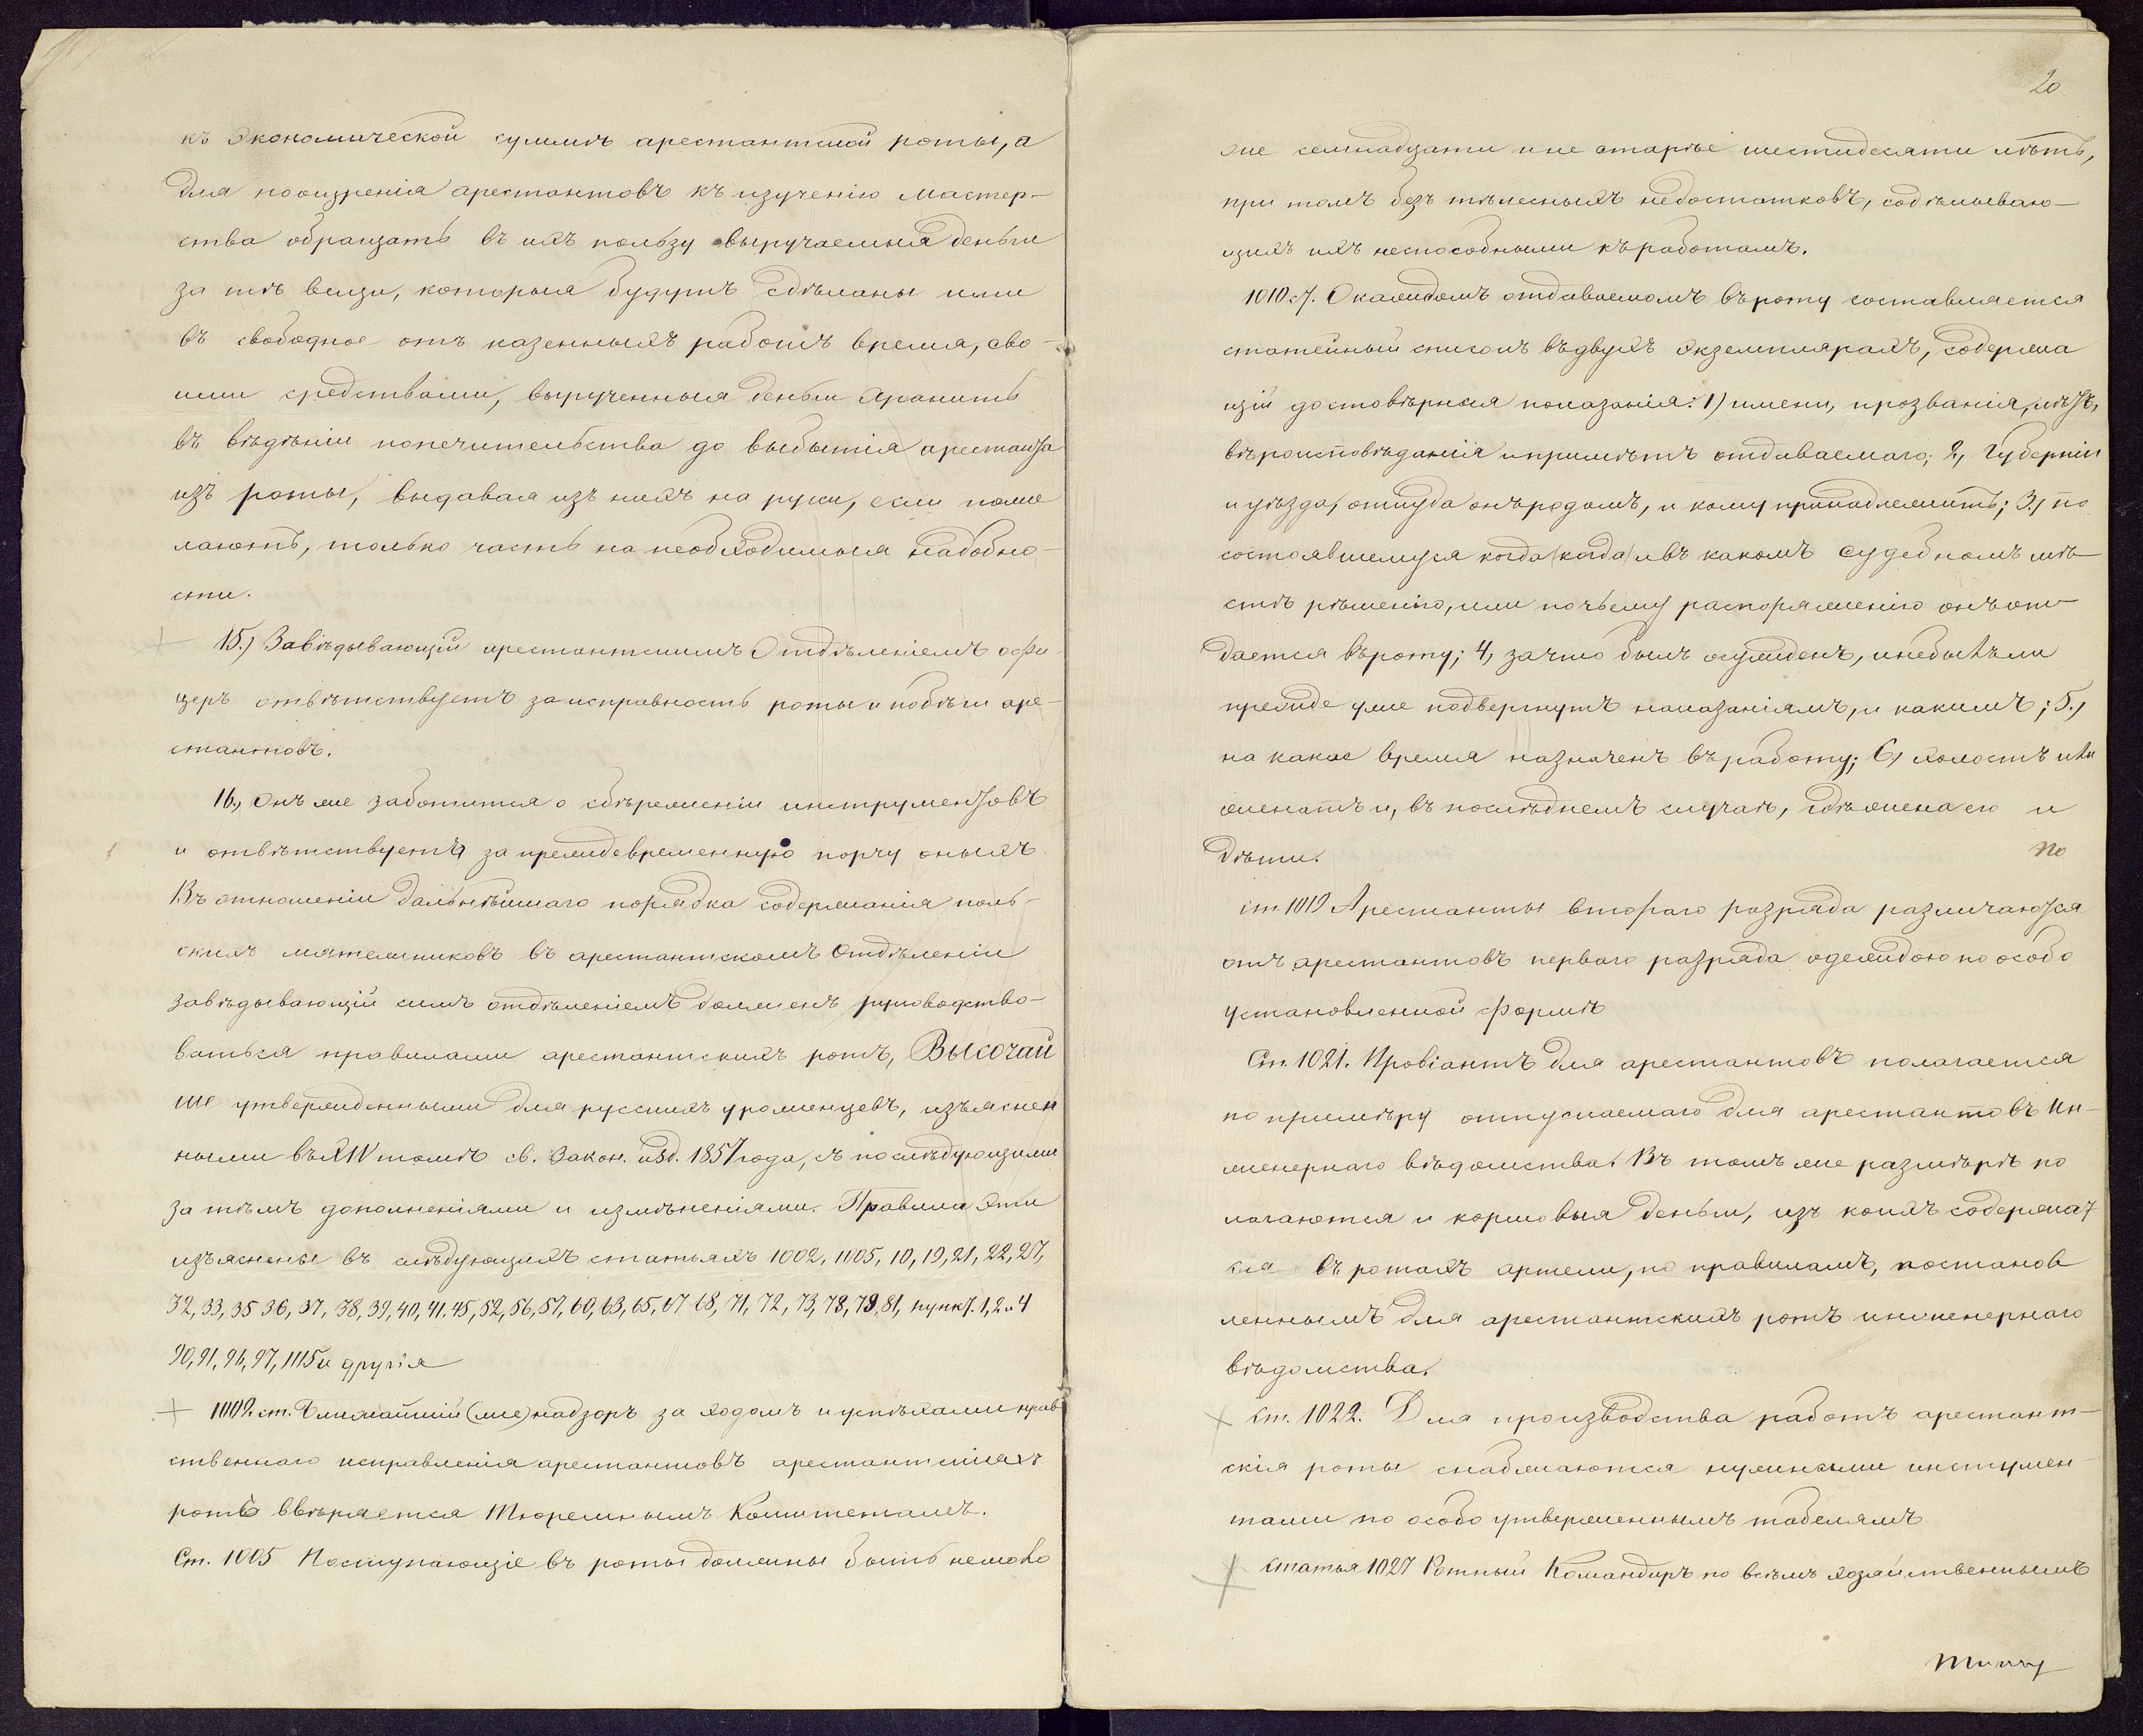 къ экономической суммѣ арестантской роты, а
для поощренія арестантовъ къ изученію мастер-
ства обращать въ ихъ пользу выручаемыя деньги
за тѣ вещи, которыя будутъ сдѣланы ими
въ свободное отъ казенныхъ работъ время, сво-
ими средствами, вырученныя деньги хранить
въ вѣдѣніи попечительства до выбытія арестанта
изъ роты, выдавая изъ нихъ на руки, если поже
лаютъ, только часть на необходимыя надобно-
сти.
15.) Завѣдывающій арестантскимъ Отдѣленіемъ офи-
церъ отвѣтствуетъ за исправность роты и побѣги аре-
стантовъ.
16., Онъ же заботится о сбѣреженіи инструментовъ
и отвѣтствуетъ за преждевременную порчу оныхъ
Въ отношеніи дальнѣйшаго порядка содержанія поль-
скихъ мятежниковъ въ арестантскомъ Отдѣленіи
завѣдывающій симъ отдѣленіемъ долженъ руководство-
ваться правилами арестантскихъ ротъ, Высочай
ше утвержденными для русскихъ уроженцевъ, изъяснен
ными въ XIV томѣ св. Закон. изд. 1857 года, съ послѣдующими
за тѣмъ дополненіями и измѣненіями. Правила эти
изъяснены въ слѣдующихъ статьяхъ 1002, 1005, 10, 19, 21, 22, 27,
32, 33, 35 36, 37, 38, 39, 40, 41. 45, 52, 56, 59, 60, 63, 65, 67 68, 71, 72, 73, 78, 79, 81, пункт. 1, 2 и 4
90, 91, 96, 97, 1115 и другія
1002 ст. Ближайшій (же) надзоръ за ходомъ и успѣхами нрав
ственнаго исправленія арестантовъ арестантскихъ
ротъ ввѣряется Тюремнымъ Комитетамъ.
Ст. 1005 Поступающіе въ роты должны быть не моло
20
же семнадцати и не старѣе шестидесяти лѣтъ,
при томъ безъ тѣлесныхъ недостатковъ, содѣлываю-
щихъ ихъ неспособными къ работамъ.
1010 ст. О каждомъ отдаваемомъ въ роту составляется
статейный списокъ въ двухъ экземплярахъ, содержа
щій достовѣрныя показанія: 1) имени, прозванія, лѣтъ,
вѣроисповѣданія и примѣтъ отдаваемаго; 2, Губерніи
и уѣзда, откуда онъ родомъ, и кому принадлежитъ; 3, по
состоявшемуся когда (когда) и въ какомъ судебномъ мѣ-
стѣ рѣшенію, или по чьему распоряженію онъ от-
дается въ роту; 4, за что былъ осужденъ, и не былъ ли
прежде уже подвергнутъ наказаніямъ, и какимъ; 5.,
на какое время назначенъ въ работу; 6, холостъ или
женатъ и, въ послѣднемъ случаѣ, гдѣ жена его и
дѣти.
по
ст. 1019 Арестанты втораго разряда различаются
отъ арестантовъ перваго разряда одеждою по особо
установленной формѣ
Ст. 1021. Провіантъ для арестантовъ полагается
по примѣру отпускаемаго для арестантовъ Ин-
женернаго вѣдомства. Въ томъ же размѣрѣ по
лагаются и кормовыя деньги, изъ коихъ содержат
ся въ ротахъ артели, по правиламъ, постанов
леннымъ для арестантскихъ ротъ инженернаго
вѣдомства.
Ст. 1022. Для производства работъ арестант-
скія роты снабжаются нужными инстумен
тами по особо утвержденнымъ табелямъ
Статья 1027 Ротный Командиръ по всѣмъ хозяйственнымъ